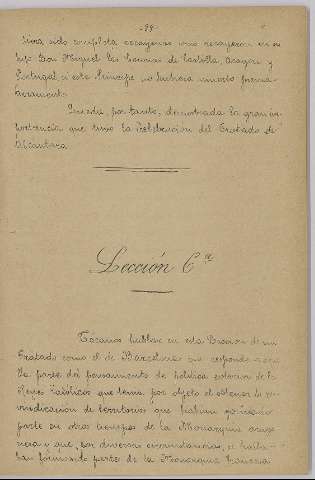 -99-
sino completa recayeron en su
hijo Don Miguel las Coronas de Castilla, Aragon y
Portugal si este Principe no hubiera muerto prema-
turamente.
Queda, por tanto, demostrada la gran im-
portancia que tuvo la celebracion del Tratado de
Alcántara
Lección 6ª
Tócanos hablar en esta Leccion de un
tratado como el de Barcelona que responde a
la parte del pensamiento de politica exterior de los
Reyes Católicos que tenia por objeto el obtener la rei-
vindicacion de territorios que habian formado
parte en otros tiempos de la Monarquia arago-
nesa y que, por diversas circunstancias, se halla-
ban formando parte de la Monarquia francesa